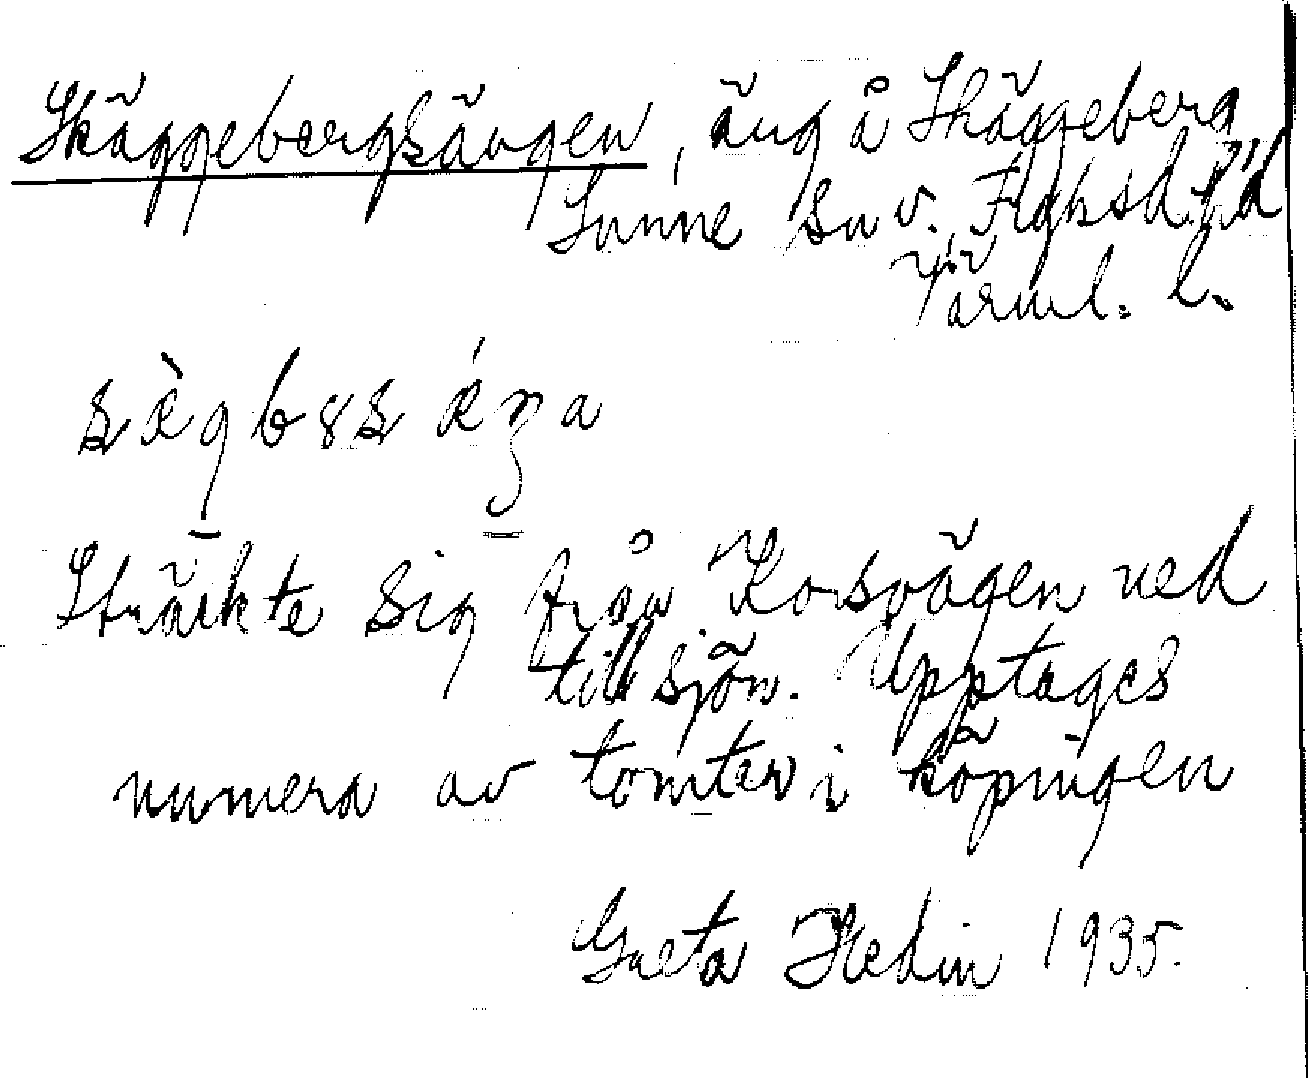 Skäggebergsängen, äng å Skäggeberg
Sunne sn v. Fryksd. hd
Värml. l.
Sträckte sig från Korsvägen ned
till sjön. Upptages
numera av tomter i köpingen
Greta Hedin 1935.